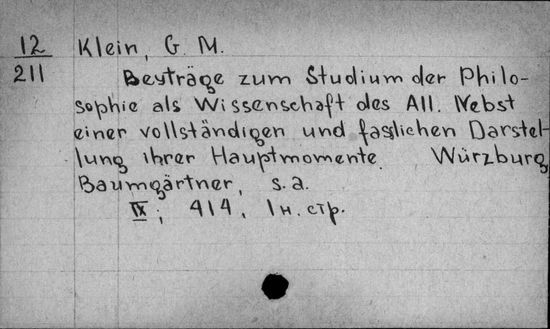 12 Klein, G. M.
211 Beyträge zum Studium der Philo-
sophie als Wissenschaft des All. Nebst
einer vollständigen und fasslichen Darstel-
lung ihrer Hauptmomente. Würzburg,
Baumgärtner, s. a.
IX; 414, 1 н. стр.